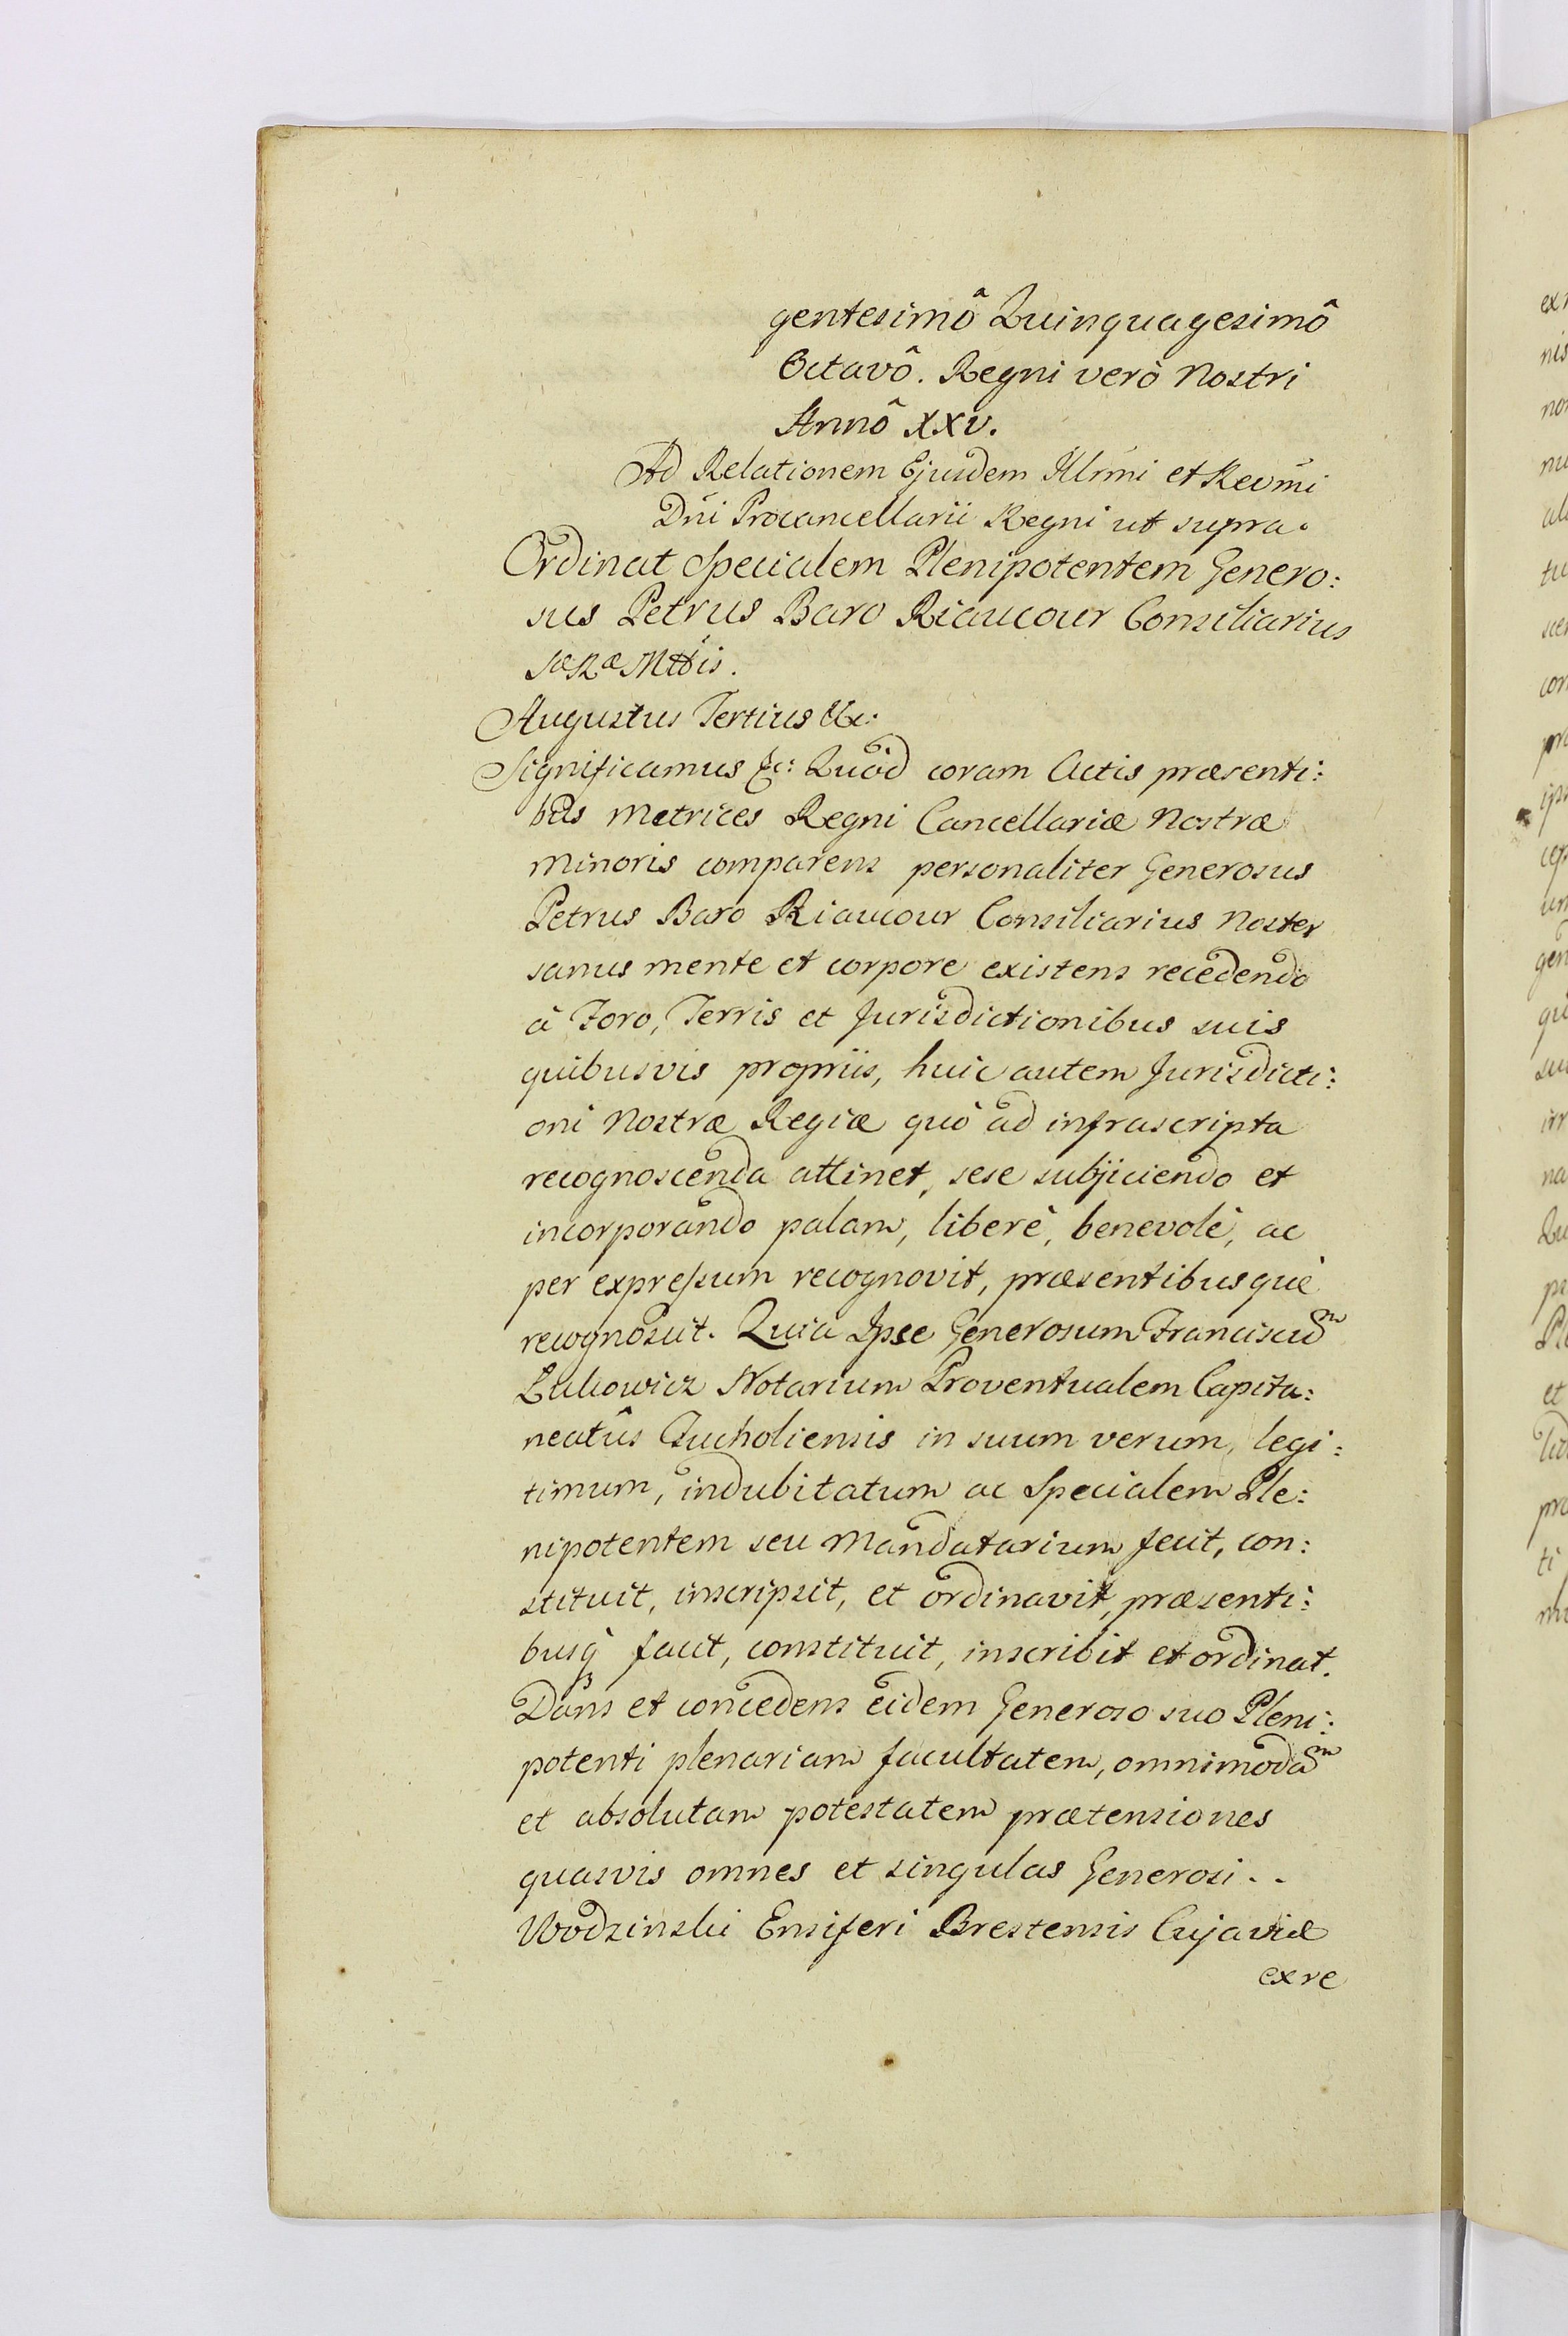 gentesimô Quinquagesimô
Octavô. Regni verò Nostri
Annô XXV.
Ad Relationem Ejusdem Illrmi et Revmi
Dni Procancellarii Regni ut supra.
Ordinat Specialem Plenipotentem Genero:
sus Petrus Baro Riaucour Consiliarius
SæRæMttis.
Augustus Tertius &c:
Significamus &c: Quòd coram Actis præsenti:
bus Metrices Regni Cancellariæ Nostræ
Minoris comparens personaliter Generosus
Petrus Baro Riaucour Consiliarius Noster
sanus mente et corpore existens recedendo
à Foro, Terris et Jurisdictionibus suis
quibusvis propriis, huic autem Jurisdicti:
oni Nostræ Regiæ quò ad infrascripta
recognoscenda attinet, sese subjiciendo et
incorporando palam, liberè, benevolè, ac
per expressum recognovit, præsentibusquè
recognoscit. Quia Ipse Generosum Franciscum
Lukowicz Notarium Proventualem Capita:
neatûs Tucholiensis in suum verum, legi:
timum, indubitatum ac Specialem Ple:
nipotentem seu Mandatarium fecit, con:
stituit, inscripsit, et ordinavit, præsenti:
busq̀ facit, constituit, inscribit et ordinat.
Dans et concedens eidem Generoso suo Pleni:
potenti plenariam facultatem, omnimodam
et absolutam potestatem prætensiones
quasvis omnes et singulas Generosi..
Wodzinski Ensiferi Brestensis Cujaviæ
ex re